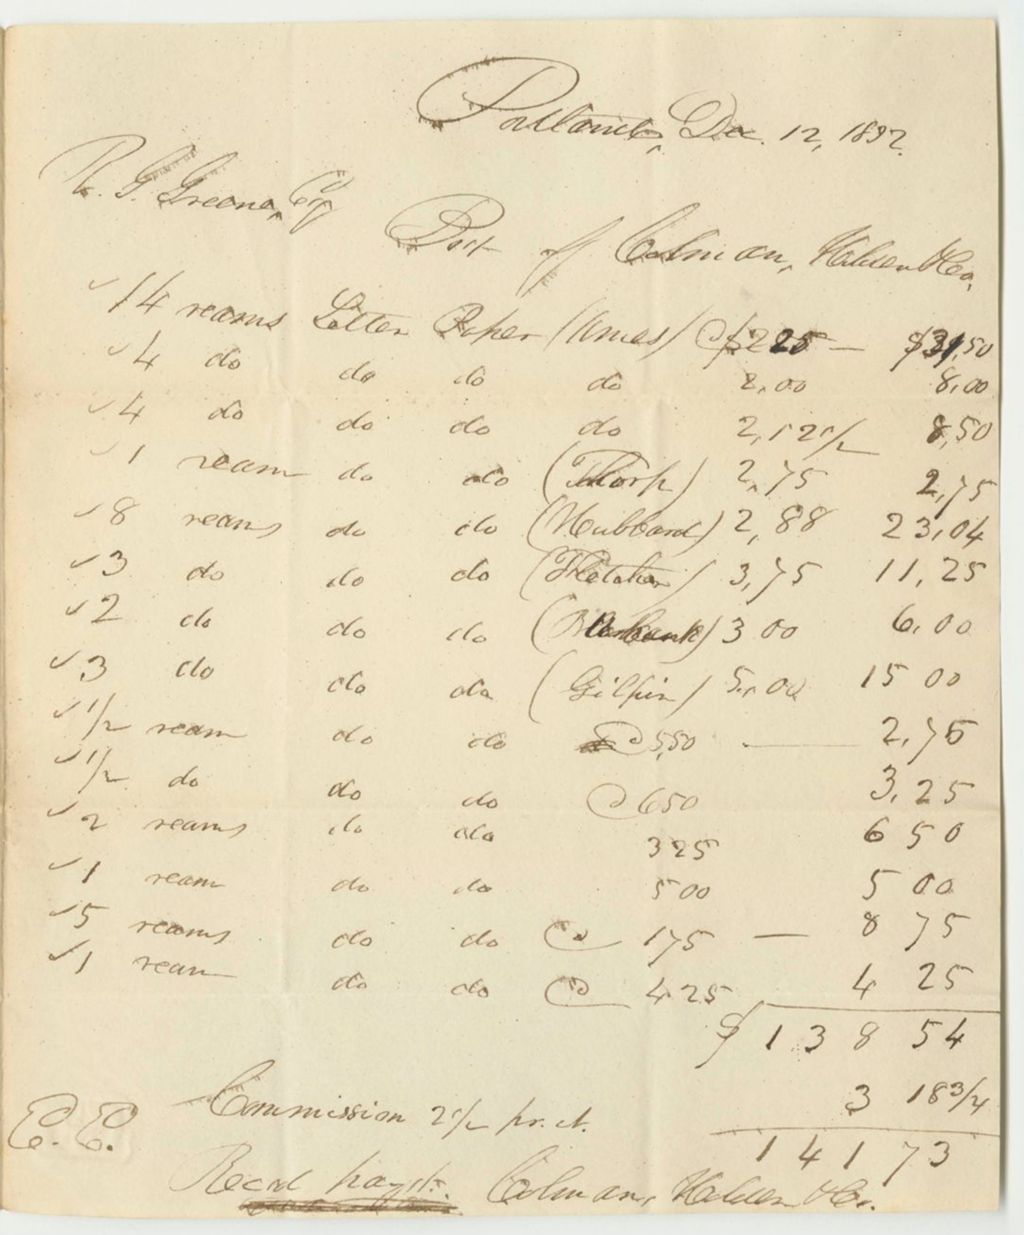 Portland, Dec. 12, 1832.
R. G. Greene, Esq
Bot of Colman, Holden & Co.
✓ 14 reams Letter Paper (Ames) @ $2 25 — $31,50
✓ 4 do do do do 2,00 8,00
✓ 4 do do do do 2,12 1/2 8,50
✓ 1 ream do do (Thorp) 2,75 2,75
✓ 8 reams do do (Hubbard) 2,88 23,04
✓ 3 do do do (Fletcher) 3,75 11,25
✓ 2 do do do (Burbank) 3 00 6,00
✓ 3 do do do (Gilpin) 5,00 15 00
✓ 1/2 ream do do @ 5,50 — 2,75
✓ 1/2 do do do @ 650 3,25
✓ 2 reams do do 325 6 50
✓ 1 ream do do 500 5 00
✓ 5 reams do do @ 175 — 8 75
✓ 1 ream do do @ 425 4 25
$138 54
Commission 2 1/2 pr. ct. 3 18 3/4
141 73
E. E.
Recd payt. Colman, Holden & Co.